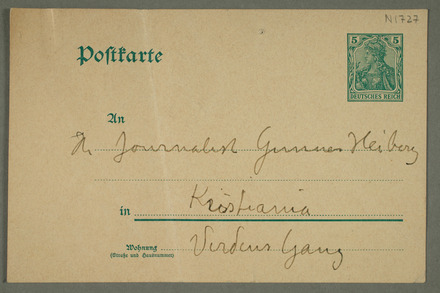 N1727
Postkarte
5 5
DEUTSCHES REICH
An
Hr Journalist Gunnar Heiberg
Kristiania
in
Wohnung
(Straße und Hausnummer)
Verdens Gang